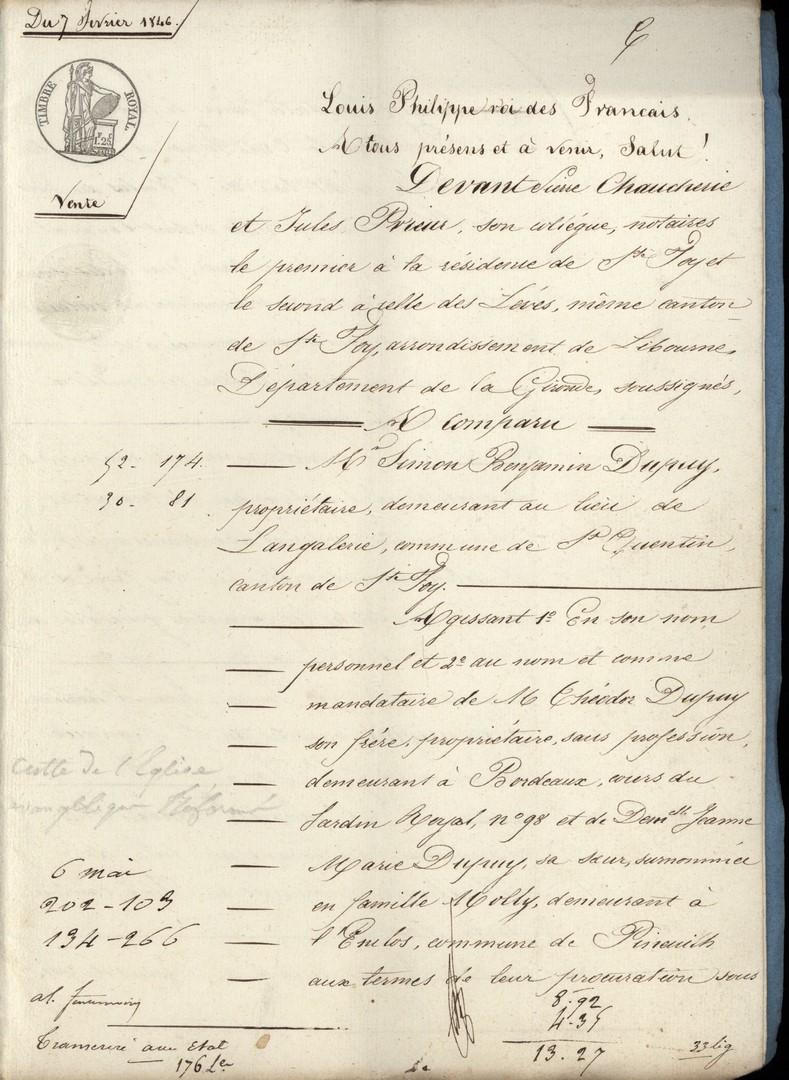 Du 7 Février 1846.
TIMBRE ROYAL
1 F. 25
Vente
Louis Philippe roi des Français.
A tous présens et à venir, Salut!
Devant Pierre Chaucherie
et Jules Prieur, son collégue, notaires
le premier à la résidence de Ste Foy et
le second à celle des Lèves, même canton
de Ste Foy, arrondissement de Libourne,
Département de la Gironde, soussignés,
A comparu
52 - 174.
30 - 81
Mr Simon Benjamin Dupuy,
propriétaire, demeurant au lieu de
Langalerie, commune de St Quentin,
canton de Ste Foy.
Agissant 1º En son nom
personnel et 2º au nom et comme
mandataire de M Théodor Dupuy
son frère, propriétaire, sans profession,
demeurant à Bordeaux, cours du
Jardin Royal, nº 98 et de Demlle Jeanne
Marie Dupuy, sa sœur, surnommée
en famille Molly, demeurant à
l'Enclos, commune de Pineuilh
aux termes de leur procuration sous
de l'Eglise
evangélique Reformé
6 mai
202 - 103
134 - 266
Transcrit aux Etat
176
8.92
4.35
13.27
33 lig